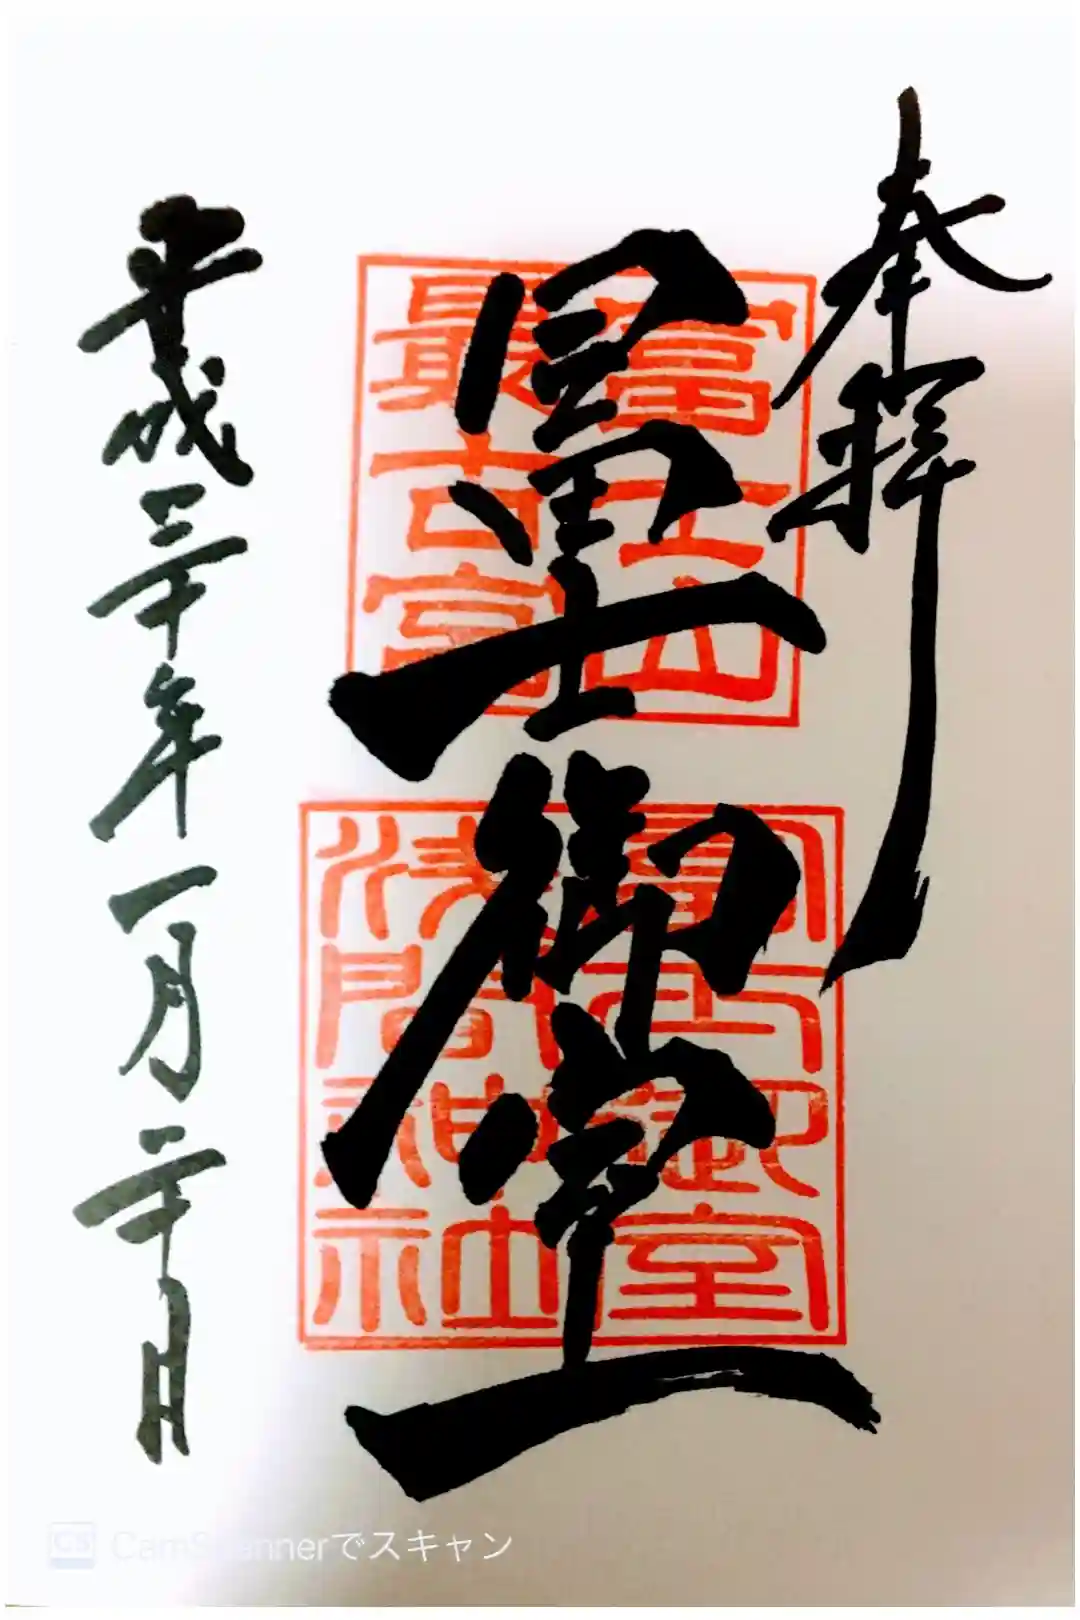 奉拝
冨士御室
富士山
最古宮
冨士御室
浅間神社
平成三十年一月二十日
CamScannerでスキャン
CS